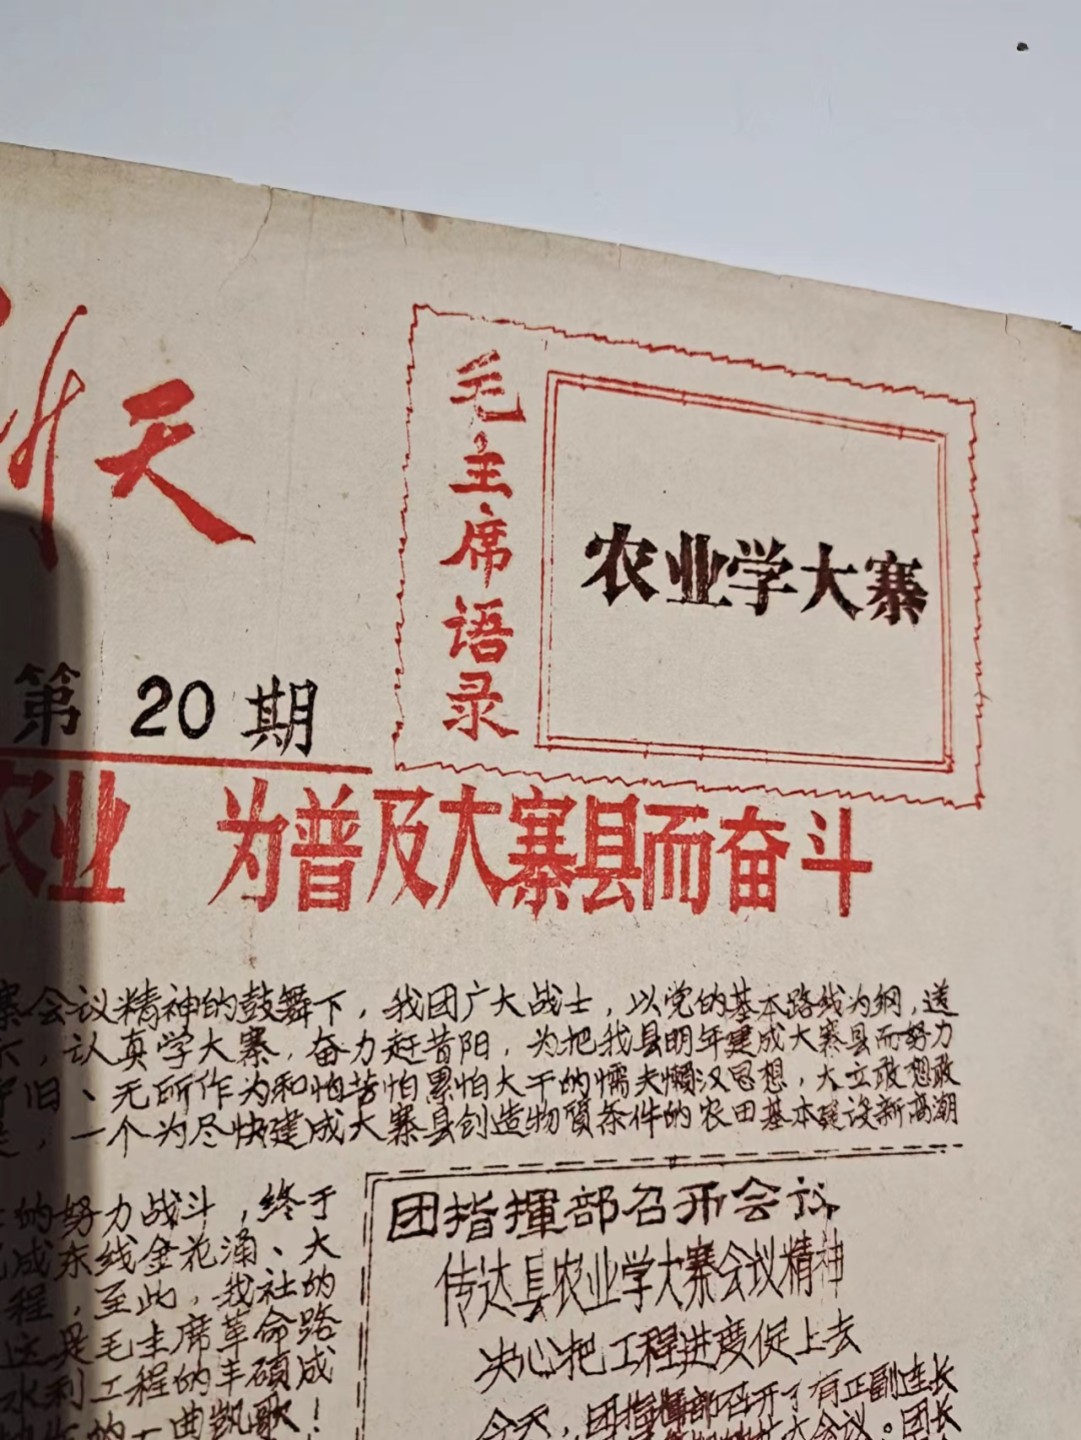 天
毛主席语录
农业学大寨
第 20 期
农业 为普及大寨县而奋斗
寨会议精神的鼓舞下，我团广大战士，以党的基本路线为纲，
，认真学大寨，奋力赶昔阳，为把我县明年建成大寨县而努力
守旧、无所作为和怕苦怕累怕大干的懦夫懒汉思想，大立敢想敢
，一个为尽快建成大寨县创造物質条件的农田基本建设新高潮
的努力战斗，终于
成东线金花涌、大
程，至此，我社的
这是毛主席革命路
水利工程的丰硕成
的一曲凯歌！
团指揮部召开会议
传达县农业学大寨会议精神
决心把工程进度促上去
今天，团指揮部召开了有正副连长
扩大会议。团长